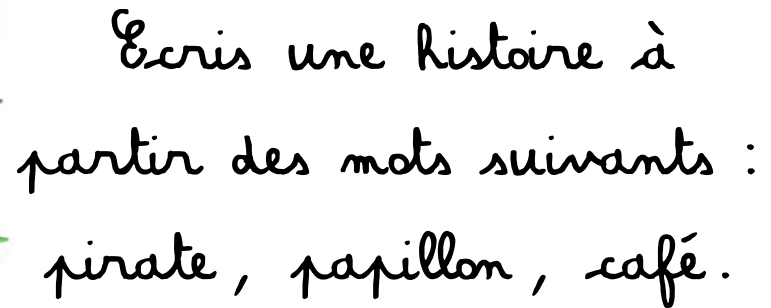 Ecris une histoire à
partir des mots suivants :
pirate, papillon, café.